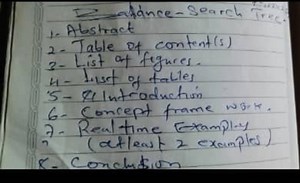 Balance - Search Tree.
1- Abstract
2- Table of content(s)
3- List of figures.
4- List of tables
5- Introduction
6- Concept frame work.
7- Real time Examples
(atleast 2 examples)
8- Conclusion